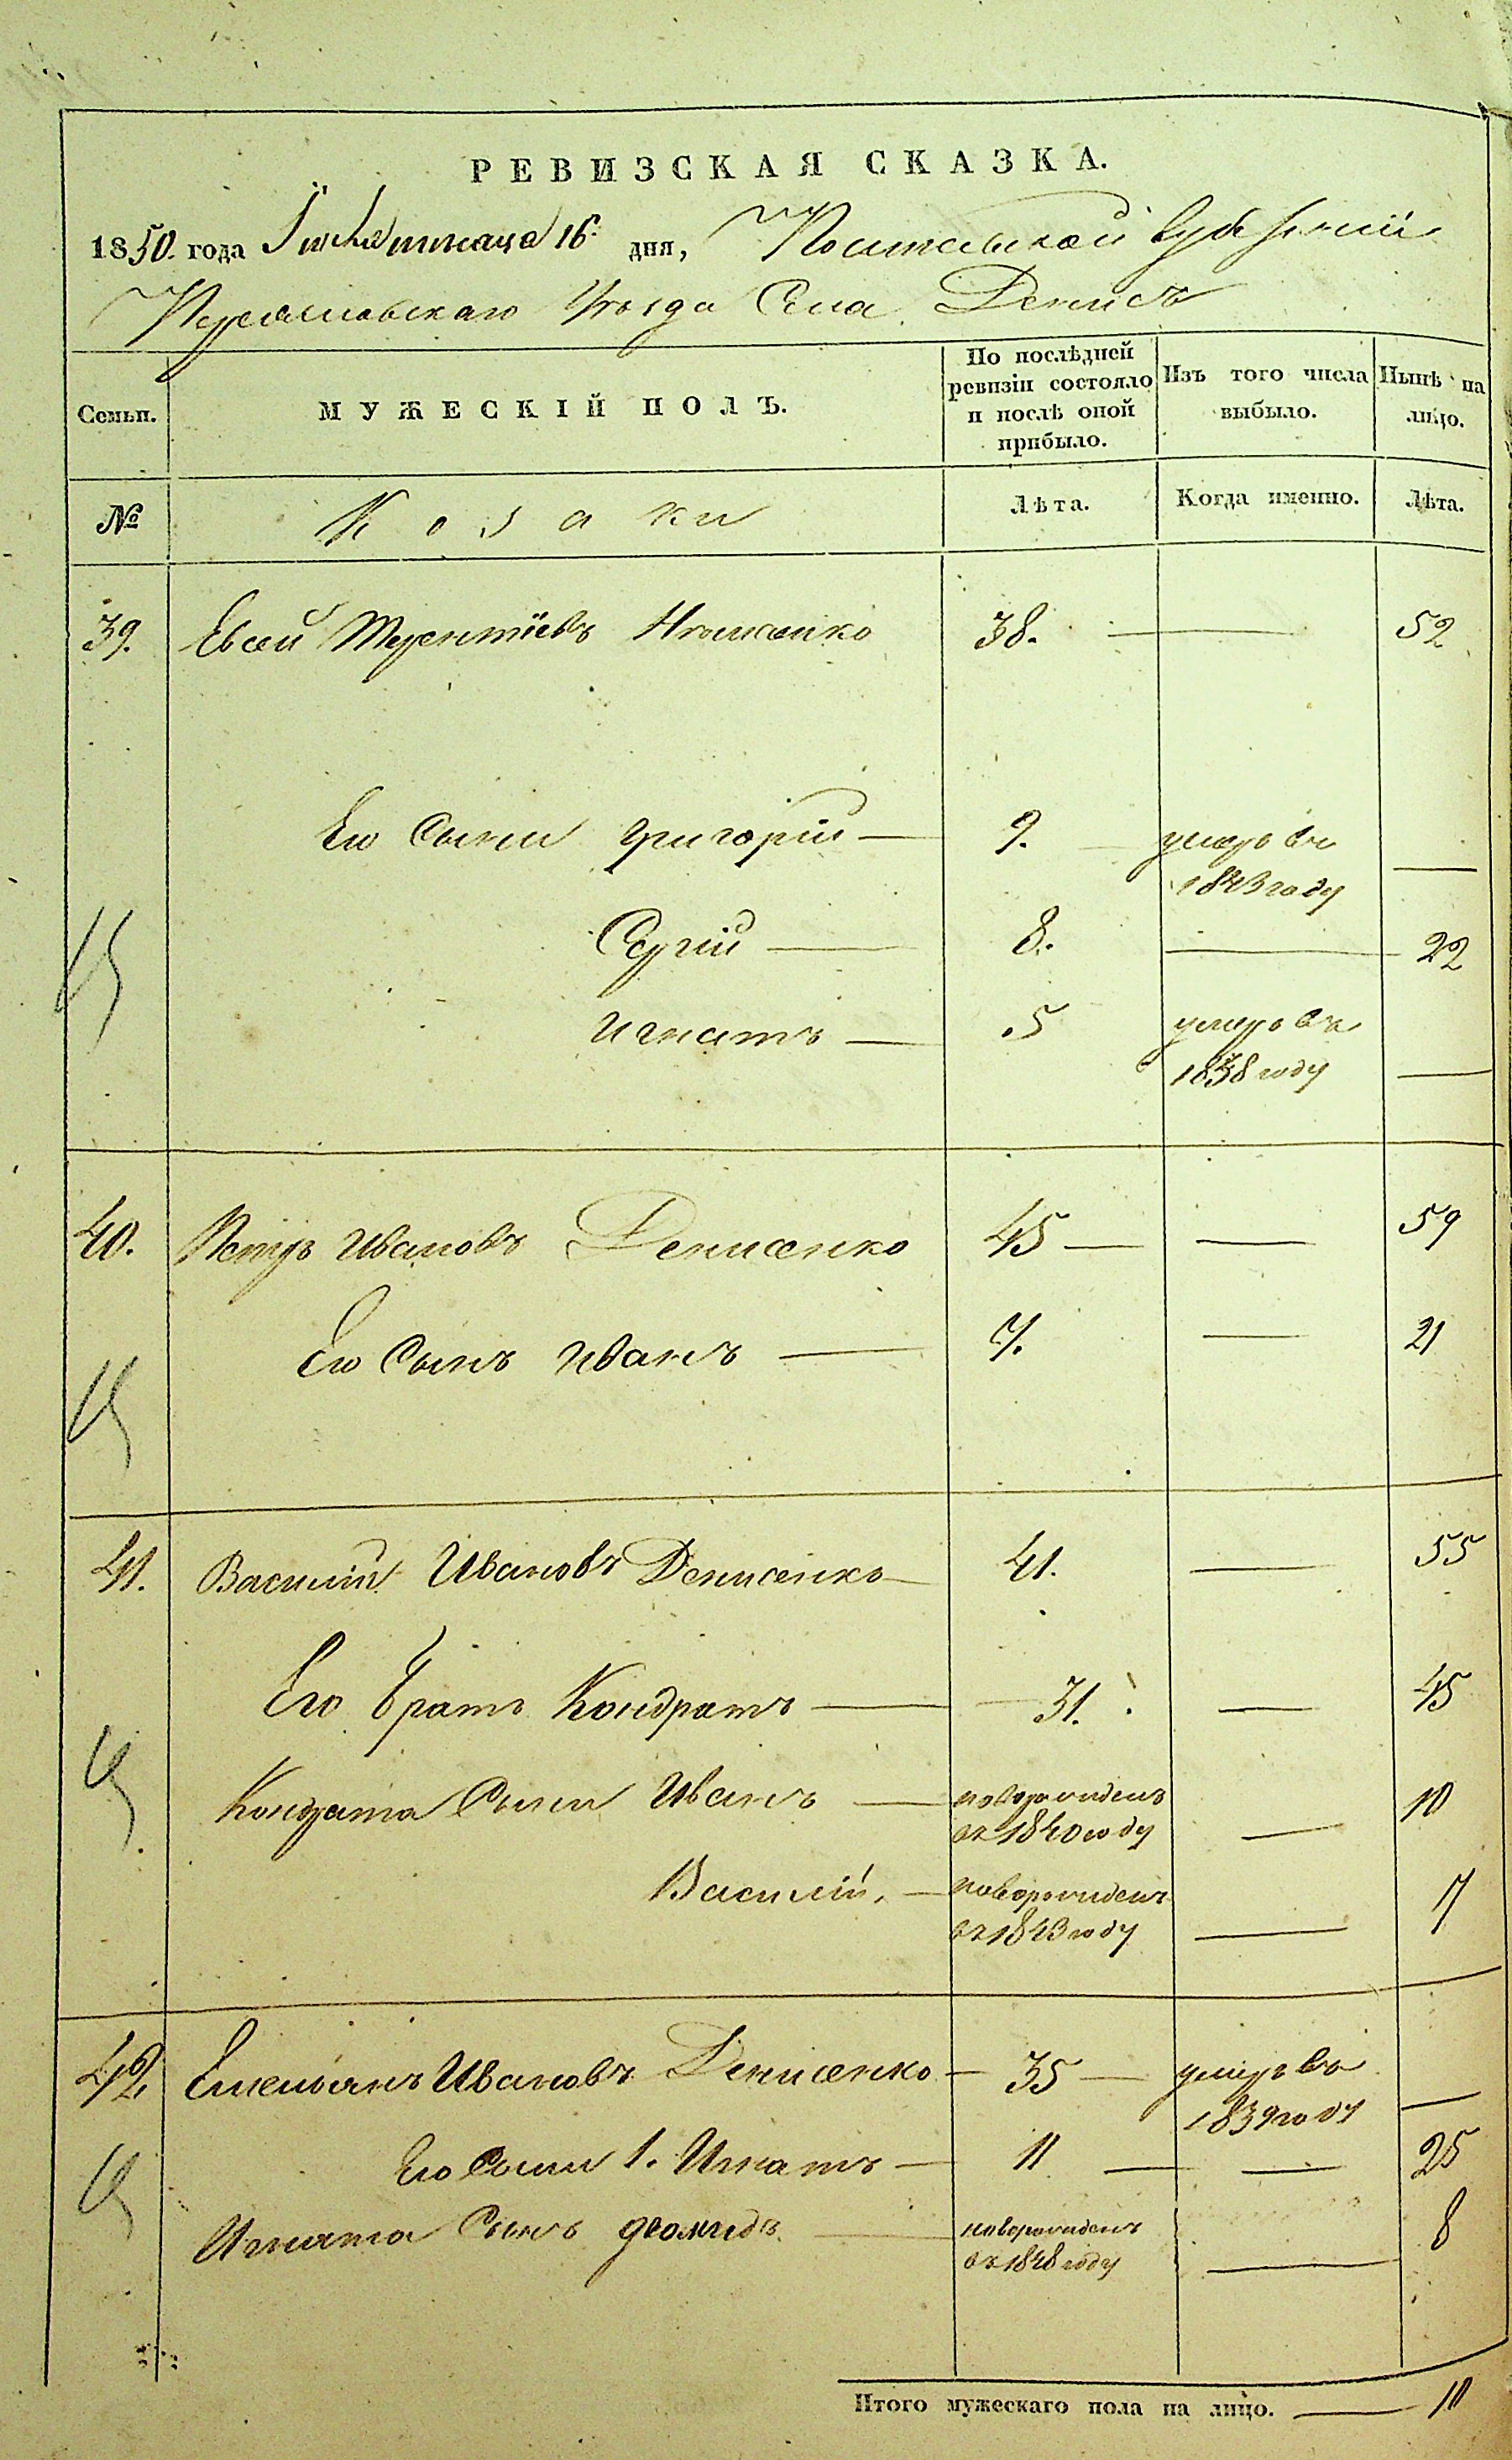 РЕВИЗСКАЯ СКАЗКА.
1850. года мѣсяца 16. дня, Полтавской Губерніи
Переяславскаго Уѣзда Села Денисъ
Семьи.
МУЖЕСКІЙ ПОЛЪ.
По послѣдней ревизіи состояло и послѣ оной прибыло.
Изъ того числа выбыло.
Нынѣ на лицо.
№
Козаки
Лѣта.
Когда именно.
Лѣта.
39. Евсей Терентіевъ 38. — 52
Его Сыни Григорій — 9. умеръ въ
1843 году —
Сергій — 8. — 22
Игнатъ — 5 умеръ въ
1838 году —
40. Петръ Ивановъ Денисенко 45 — — 59
Его Сынъ Иванъ — 7. — 21
41. Василій Ивановъ Денисенко — 41. — 55
Его братъ Кондратъ — 31. — 45
Кондрата Сыни Иванъ — новорожденъ
въ 1840 году — 10
Василій. — новорожденъ
въ 1843 году — 7
42 Емельянъ Ивановъ Денисенко — 35 — умеръ въ
1839 году —
Его Сыни 1. Игнатъ — 11 — — 25
Игната Сынъ Деомидъ — новорожденъ
году — 8
Итого мужескаго пола на лицо. — 10